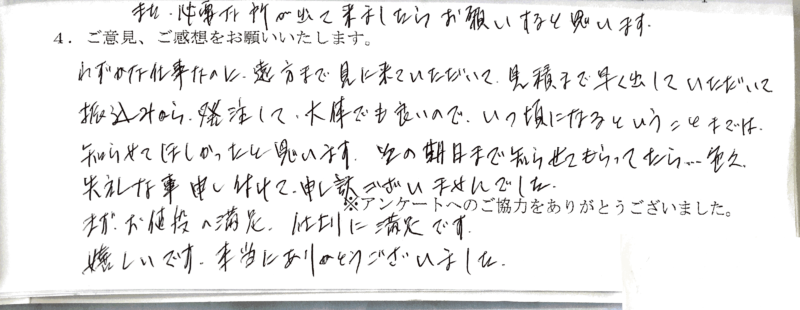 また、必要な所が出て来ましたらお願いすると思います。
4. ご意見、ご感想をお願いいたします。
わずかな仕事なのに、遠方まで見に来ていただいて、見積まで早く出していただいて
振込みから、発注して、大体でも良いので、いつ頃になるということまでは、
知らせてほしかったと思います。その期日まで知らせてもらってたら…
失礼な事申し付けて、申し訳ございませんでした。
※アンケートへのご協力をありがとうございました。
まず、お値段の満足、仕切りに満足です。
嬉しいです。本当にありがとうございました。